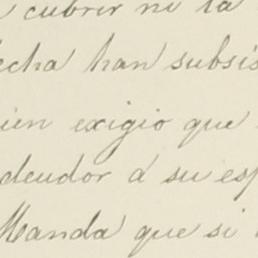 cubrir ni la
echa han subsis
ien exigio que
deudor á su esp
Manda que si